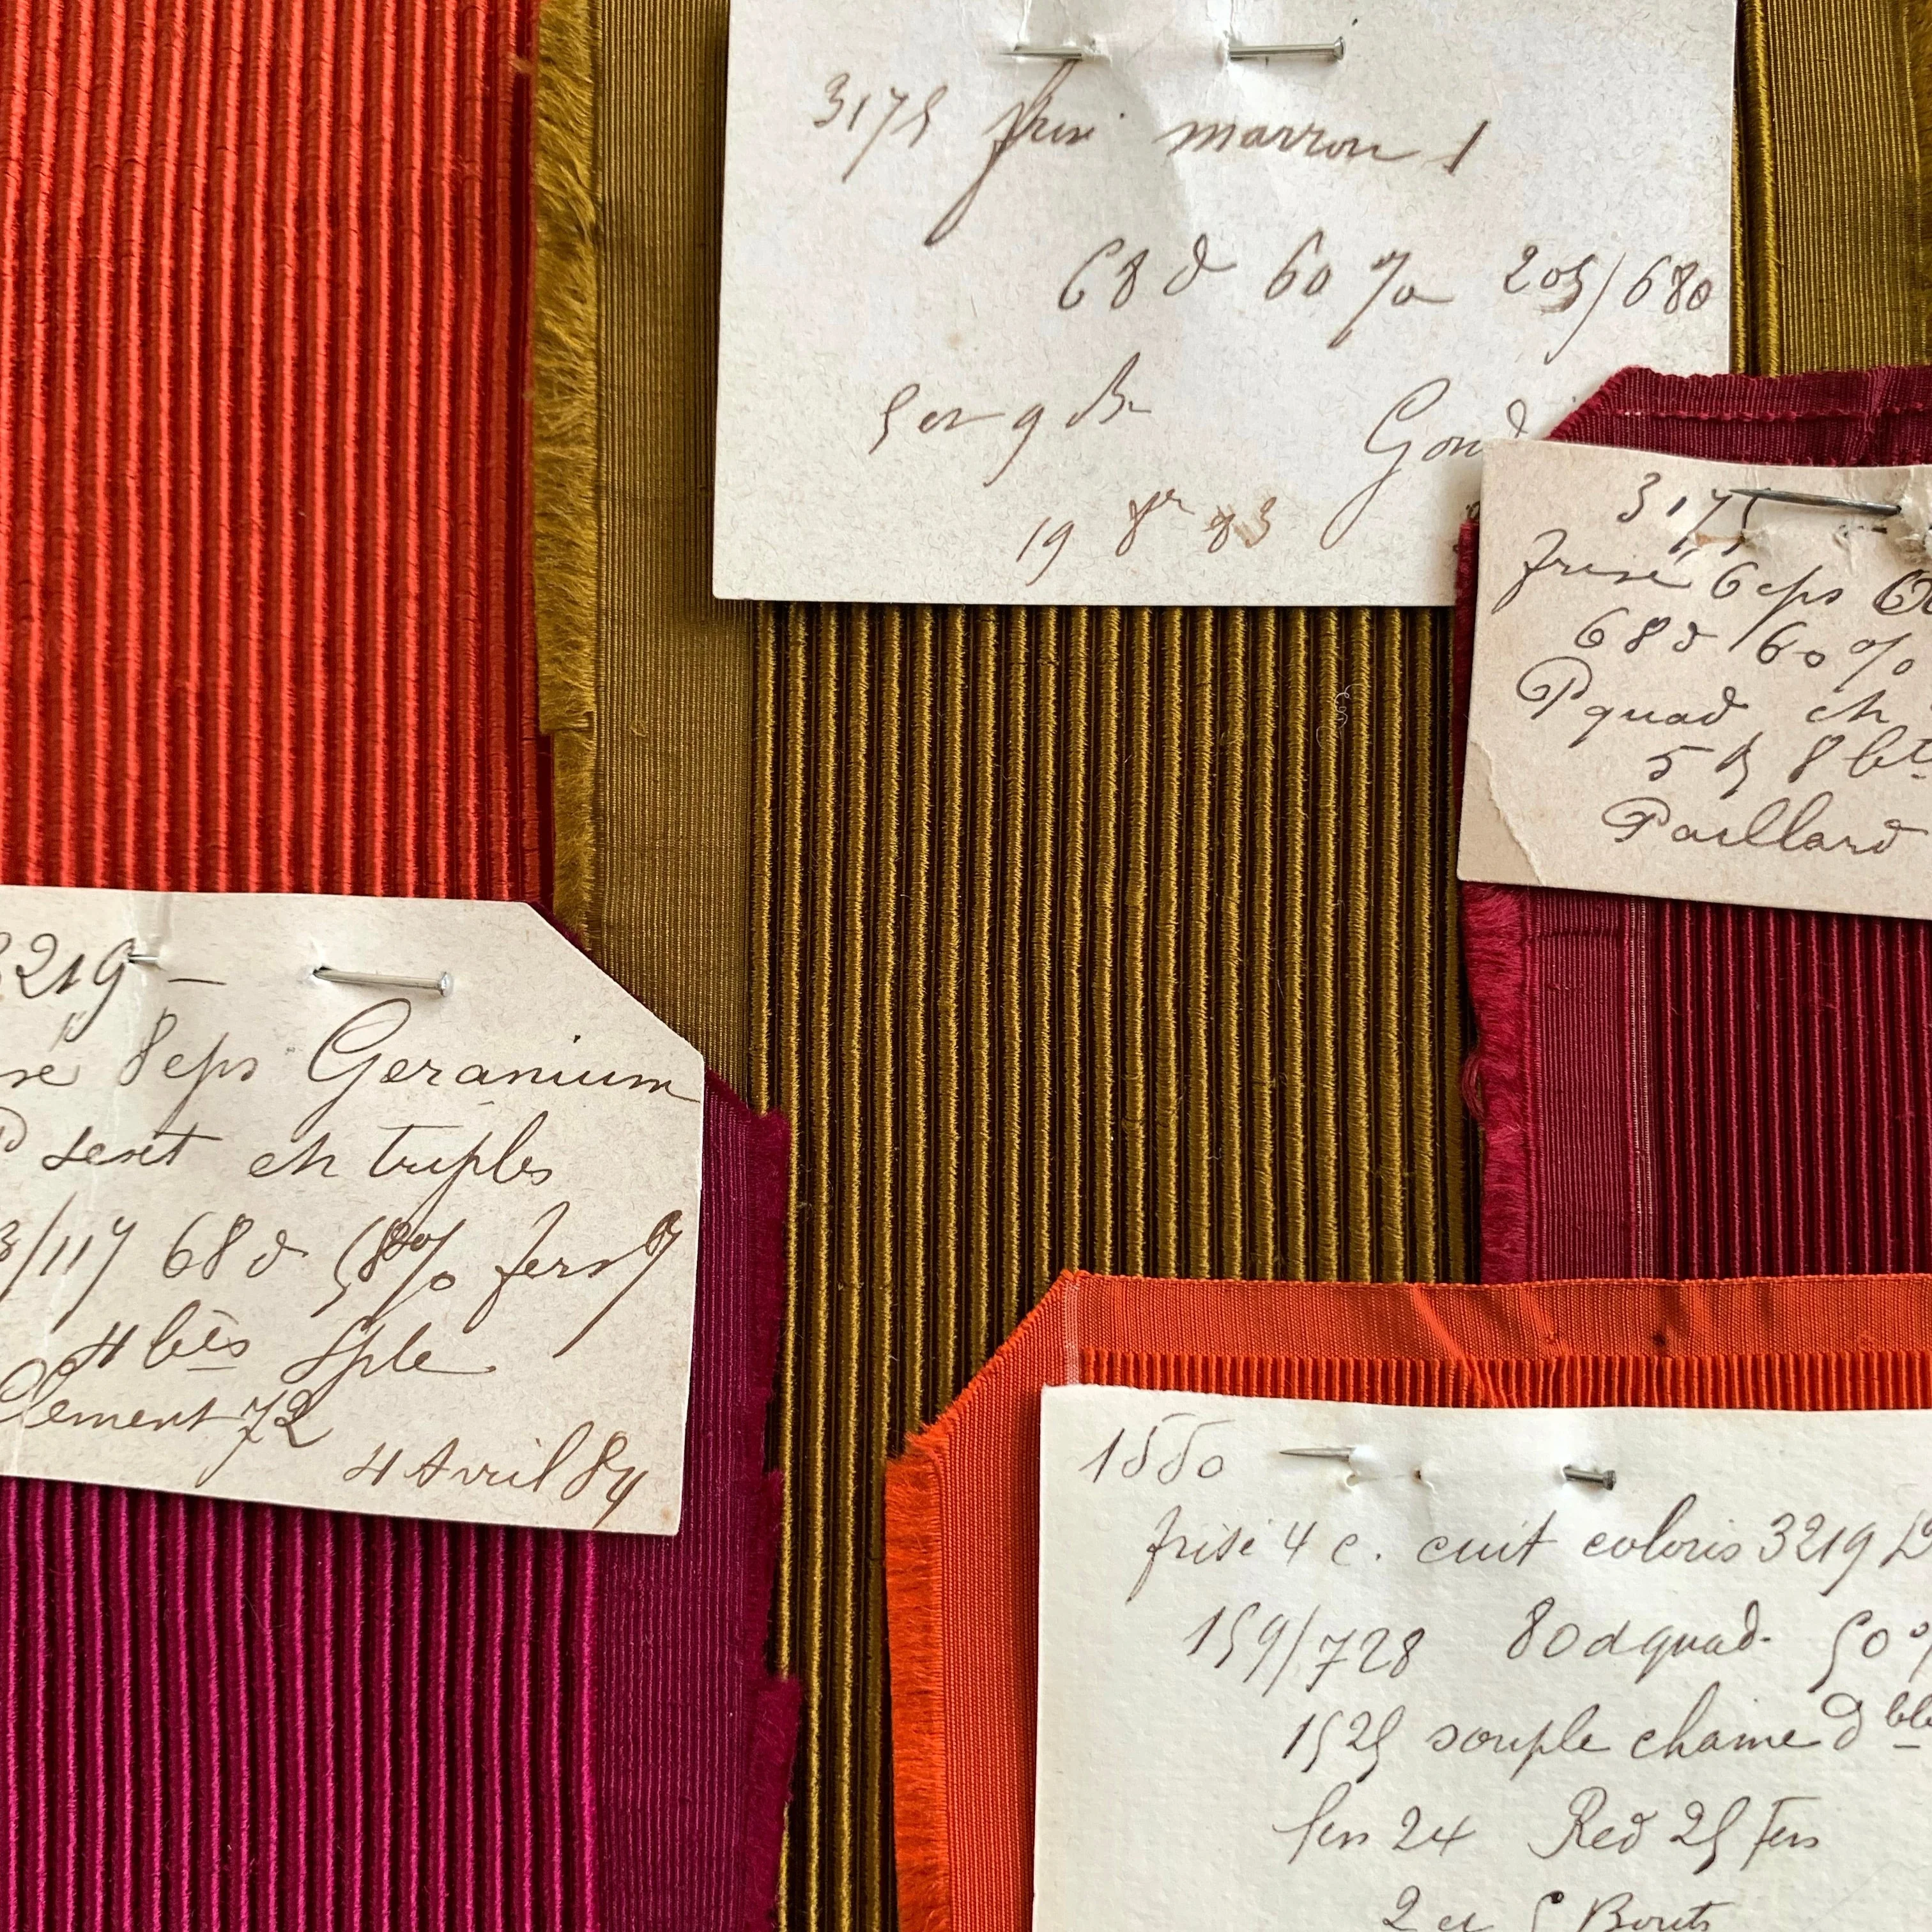 3175 frisé marron 1
68 d 60 % 205/680
19 8re 83
3175
frisé 6 eps
68 d 60 %
P quad ch
5 8 bts
Paillard
3219 —
8 eps Geranium
ch triples
/117 68 d 58 % fers
4 bts Sple
Clement 72
4 Avril 84
1550
frisé 4 c. cuit coloris 3219
159/728 80 d quad. 50 %
1525 souple chaine dble
fers 24 Red 25 Fers
2 et 5 Bouts